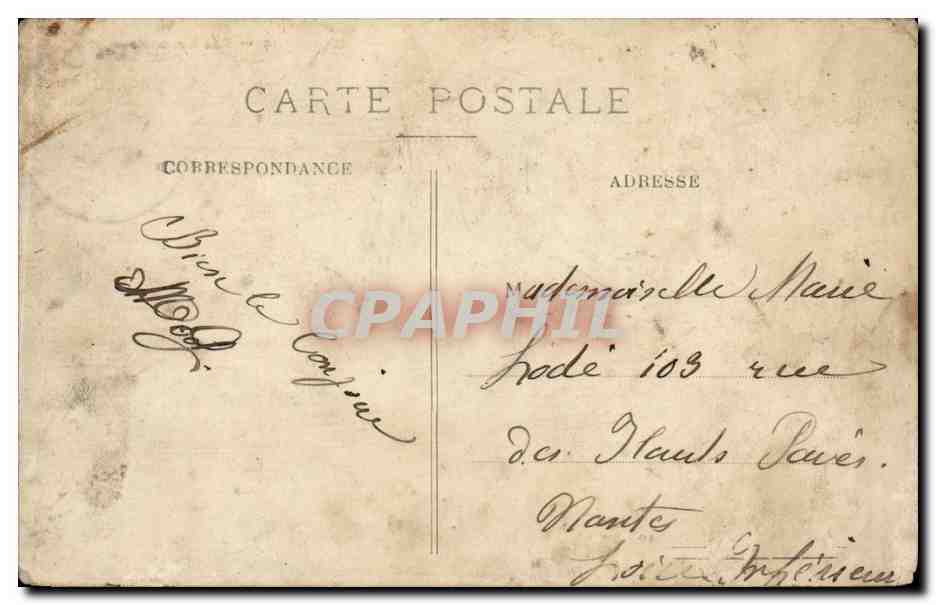 CARTE POSTALE
CORRESPONDANCE
ADRESSE
Bien le
Bonjour
CPAPHIL
Mademoiselle Marie
Lodé 103 rue
des Hauts Pavés.
Nantes
Loire Inférieure